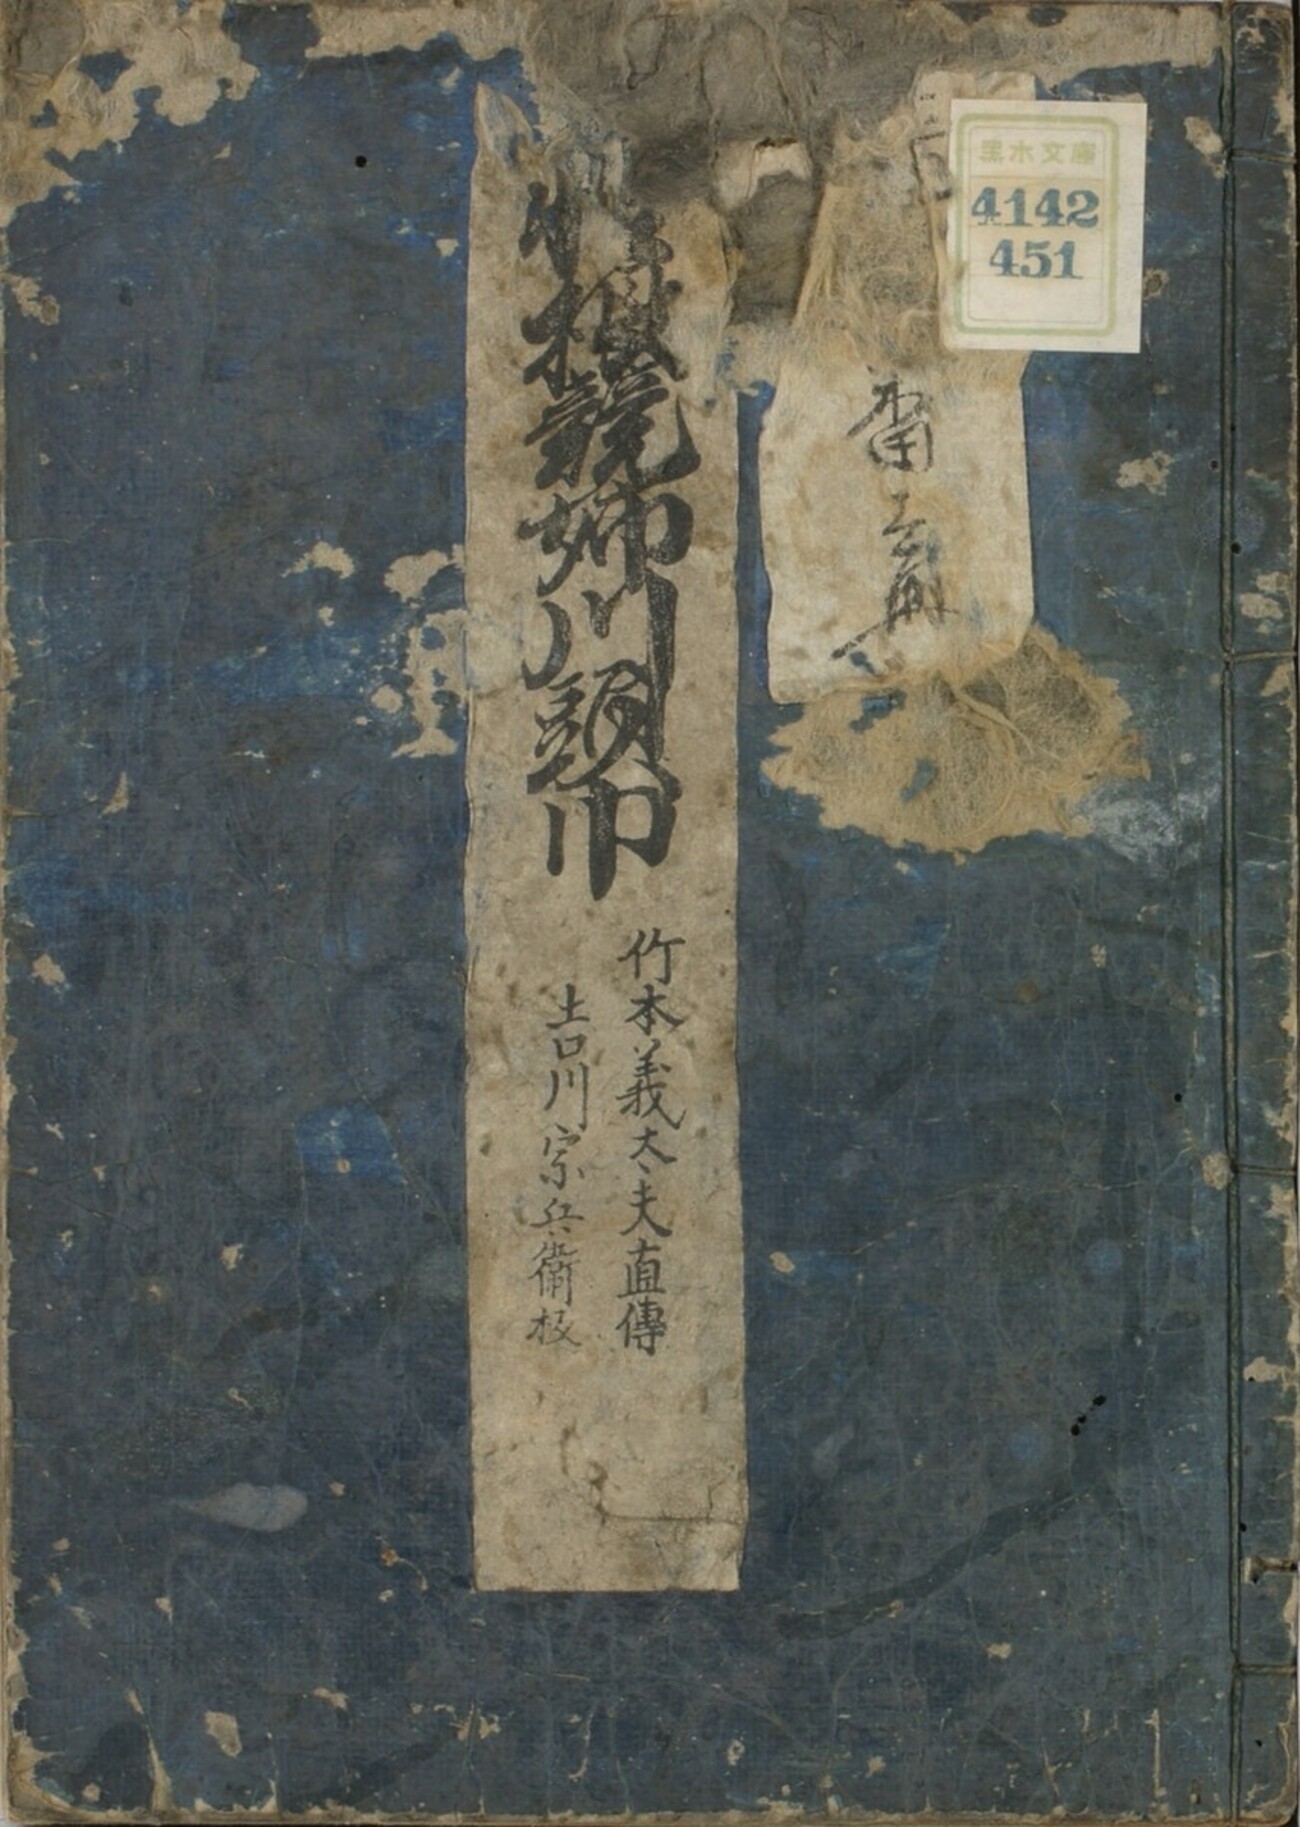 黒木文庫
4142
451
番
性根競姉川頭巾
竹本義太夫直傳
吉川宗兵衛板